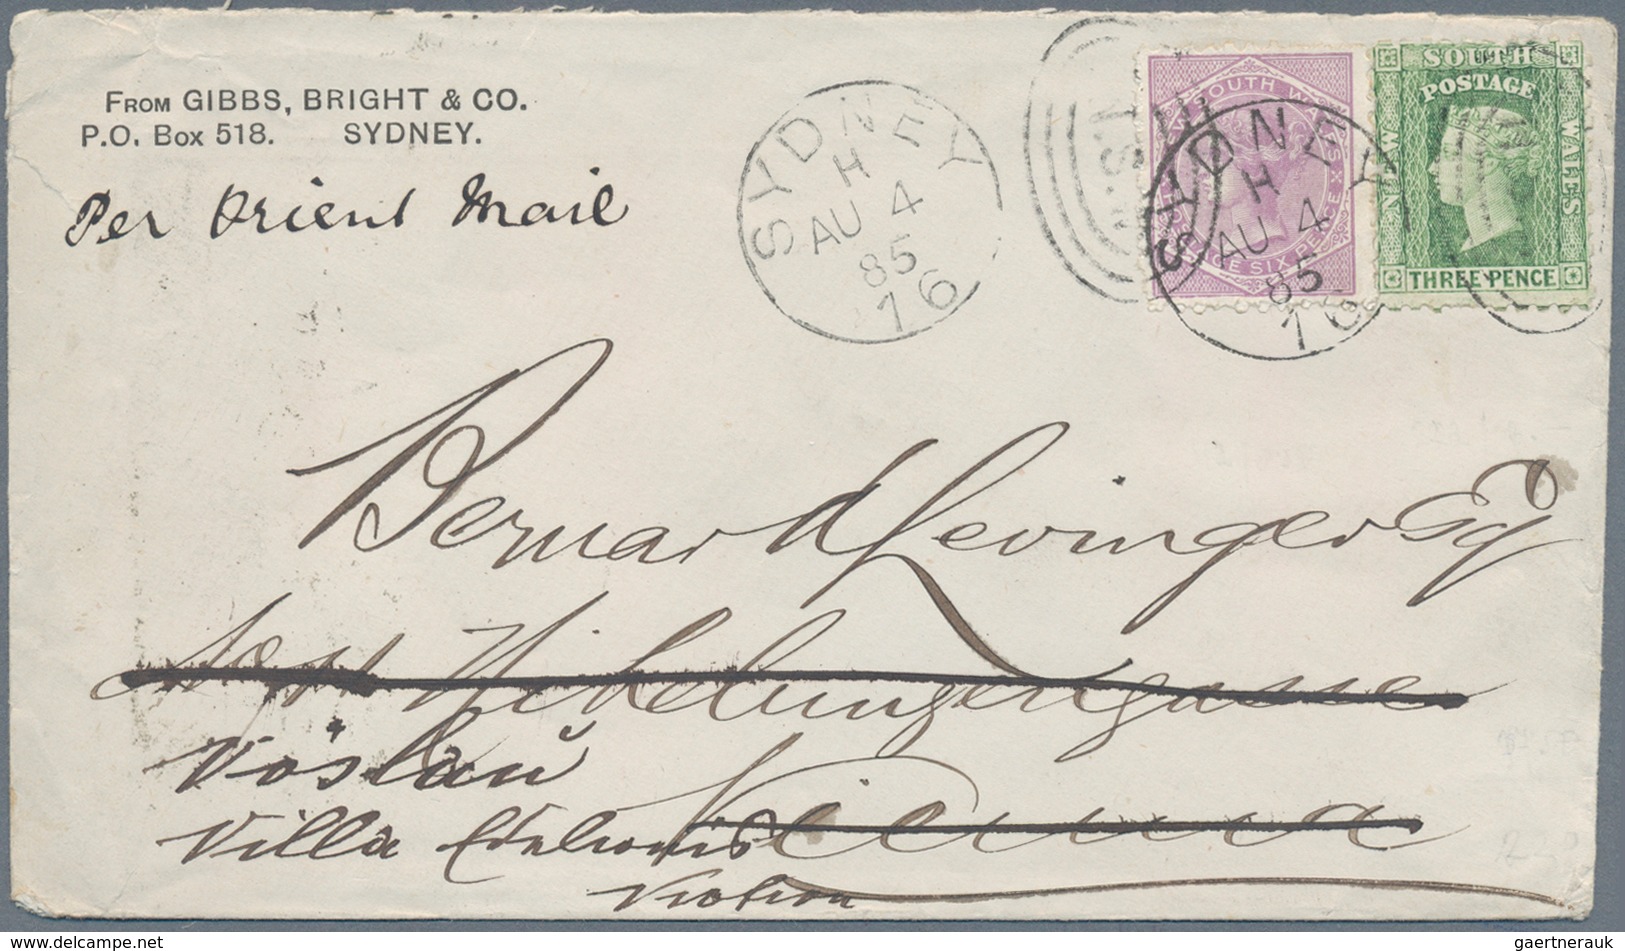 FROM GIBBS, BRIGHT & CO.
P.O. Box 518. SYDNEY.
Per Orient Mail
SYDNEY
H
AU 4
85
16
N.S.W
SOUTH WALES
POSTAGE SIX PENCE
SYDNEY
H
AU 4
85
16
SOUTH
POSTAGE
NEW
WALES
THREE PENCE
Bernard Levinger Esq
Nibelungengasse
Vöslau
Villa
Vienna
gaertnerauk
www.delcampe.net